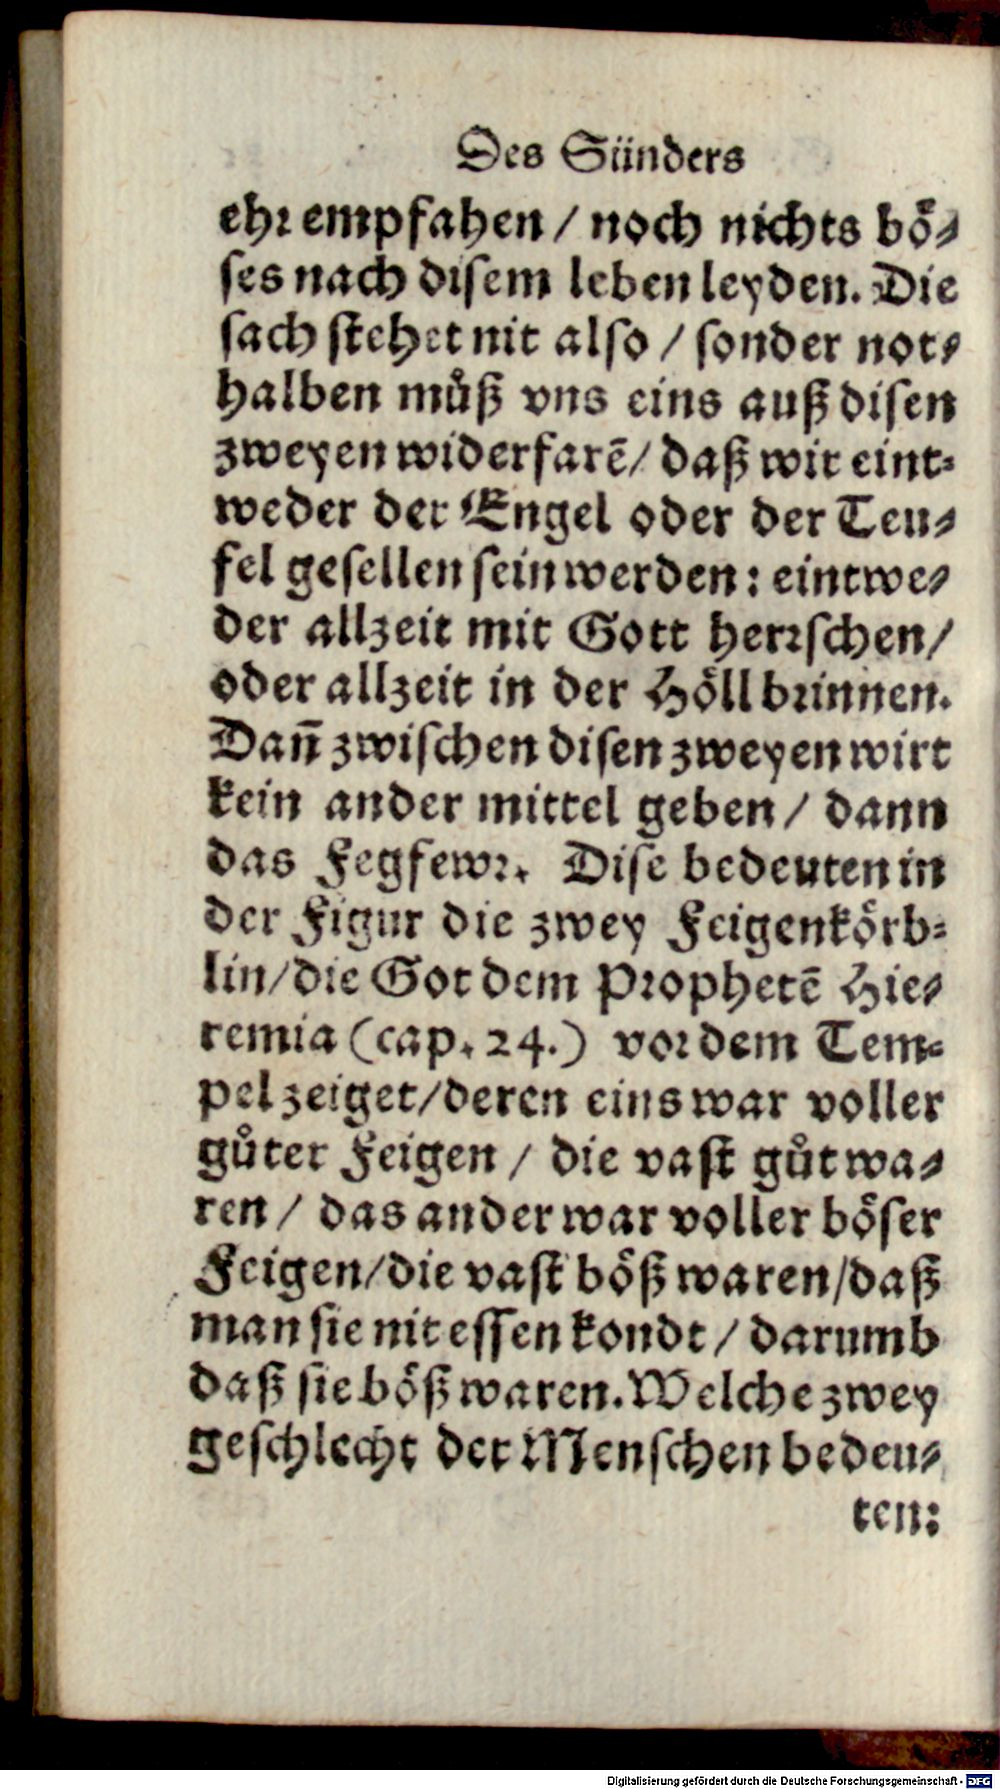 Des Sünders
ehr empfahen / noch nichts bö⸗
ses nach disem leben leyden. Die
sach stehet nit also / sonder not⸗
halben můß vns eins auß disen
zweyen widerfarē / daß wir eint⸗
weder der Engel oder der Teu⸗
fel gesellen sein werden: eintwe⸗
der allzeit mit Gott herrschen /
oder allzeit in der Höll brinnen.
Dañ zwischen disen zweyen wirt
kein ander mittel geben / dann
das Fegfewr. Dise bedeuten in
der Figur die zwey Feigenkörb⸗
lin / die Got dem Prophetē Hie⸗
remia (cap. 24.) vor dem Tem⸗
pel zeiget / deren eins war voller
gůter Feigen / die vast gůt wa⸗
ren / das ander war voller böser
Feigen / die vast böß waren / daß
man sie nit essen kondt / darumb
daß sie böß waren. Welche zwey
geschlecht der Menschen bedeu⸗
ten:
Digitalisierung gefördert durch die Deutsche Forschungsgemeinschaft - DFG